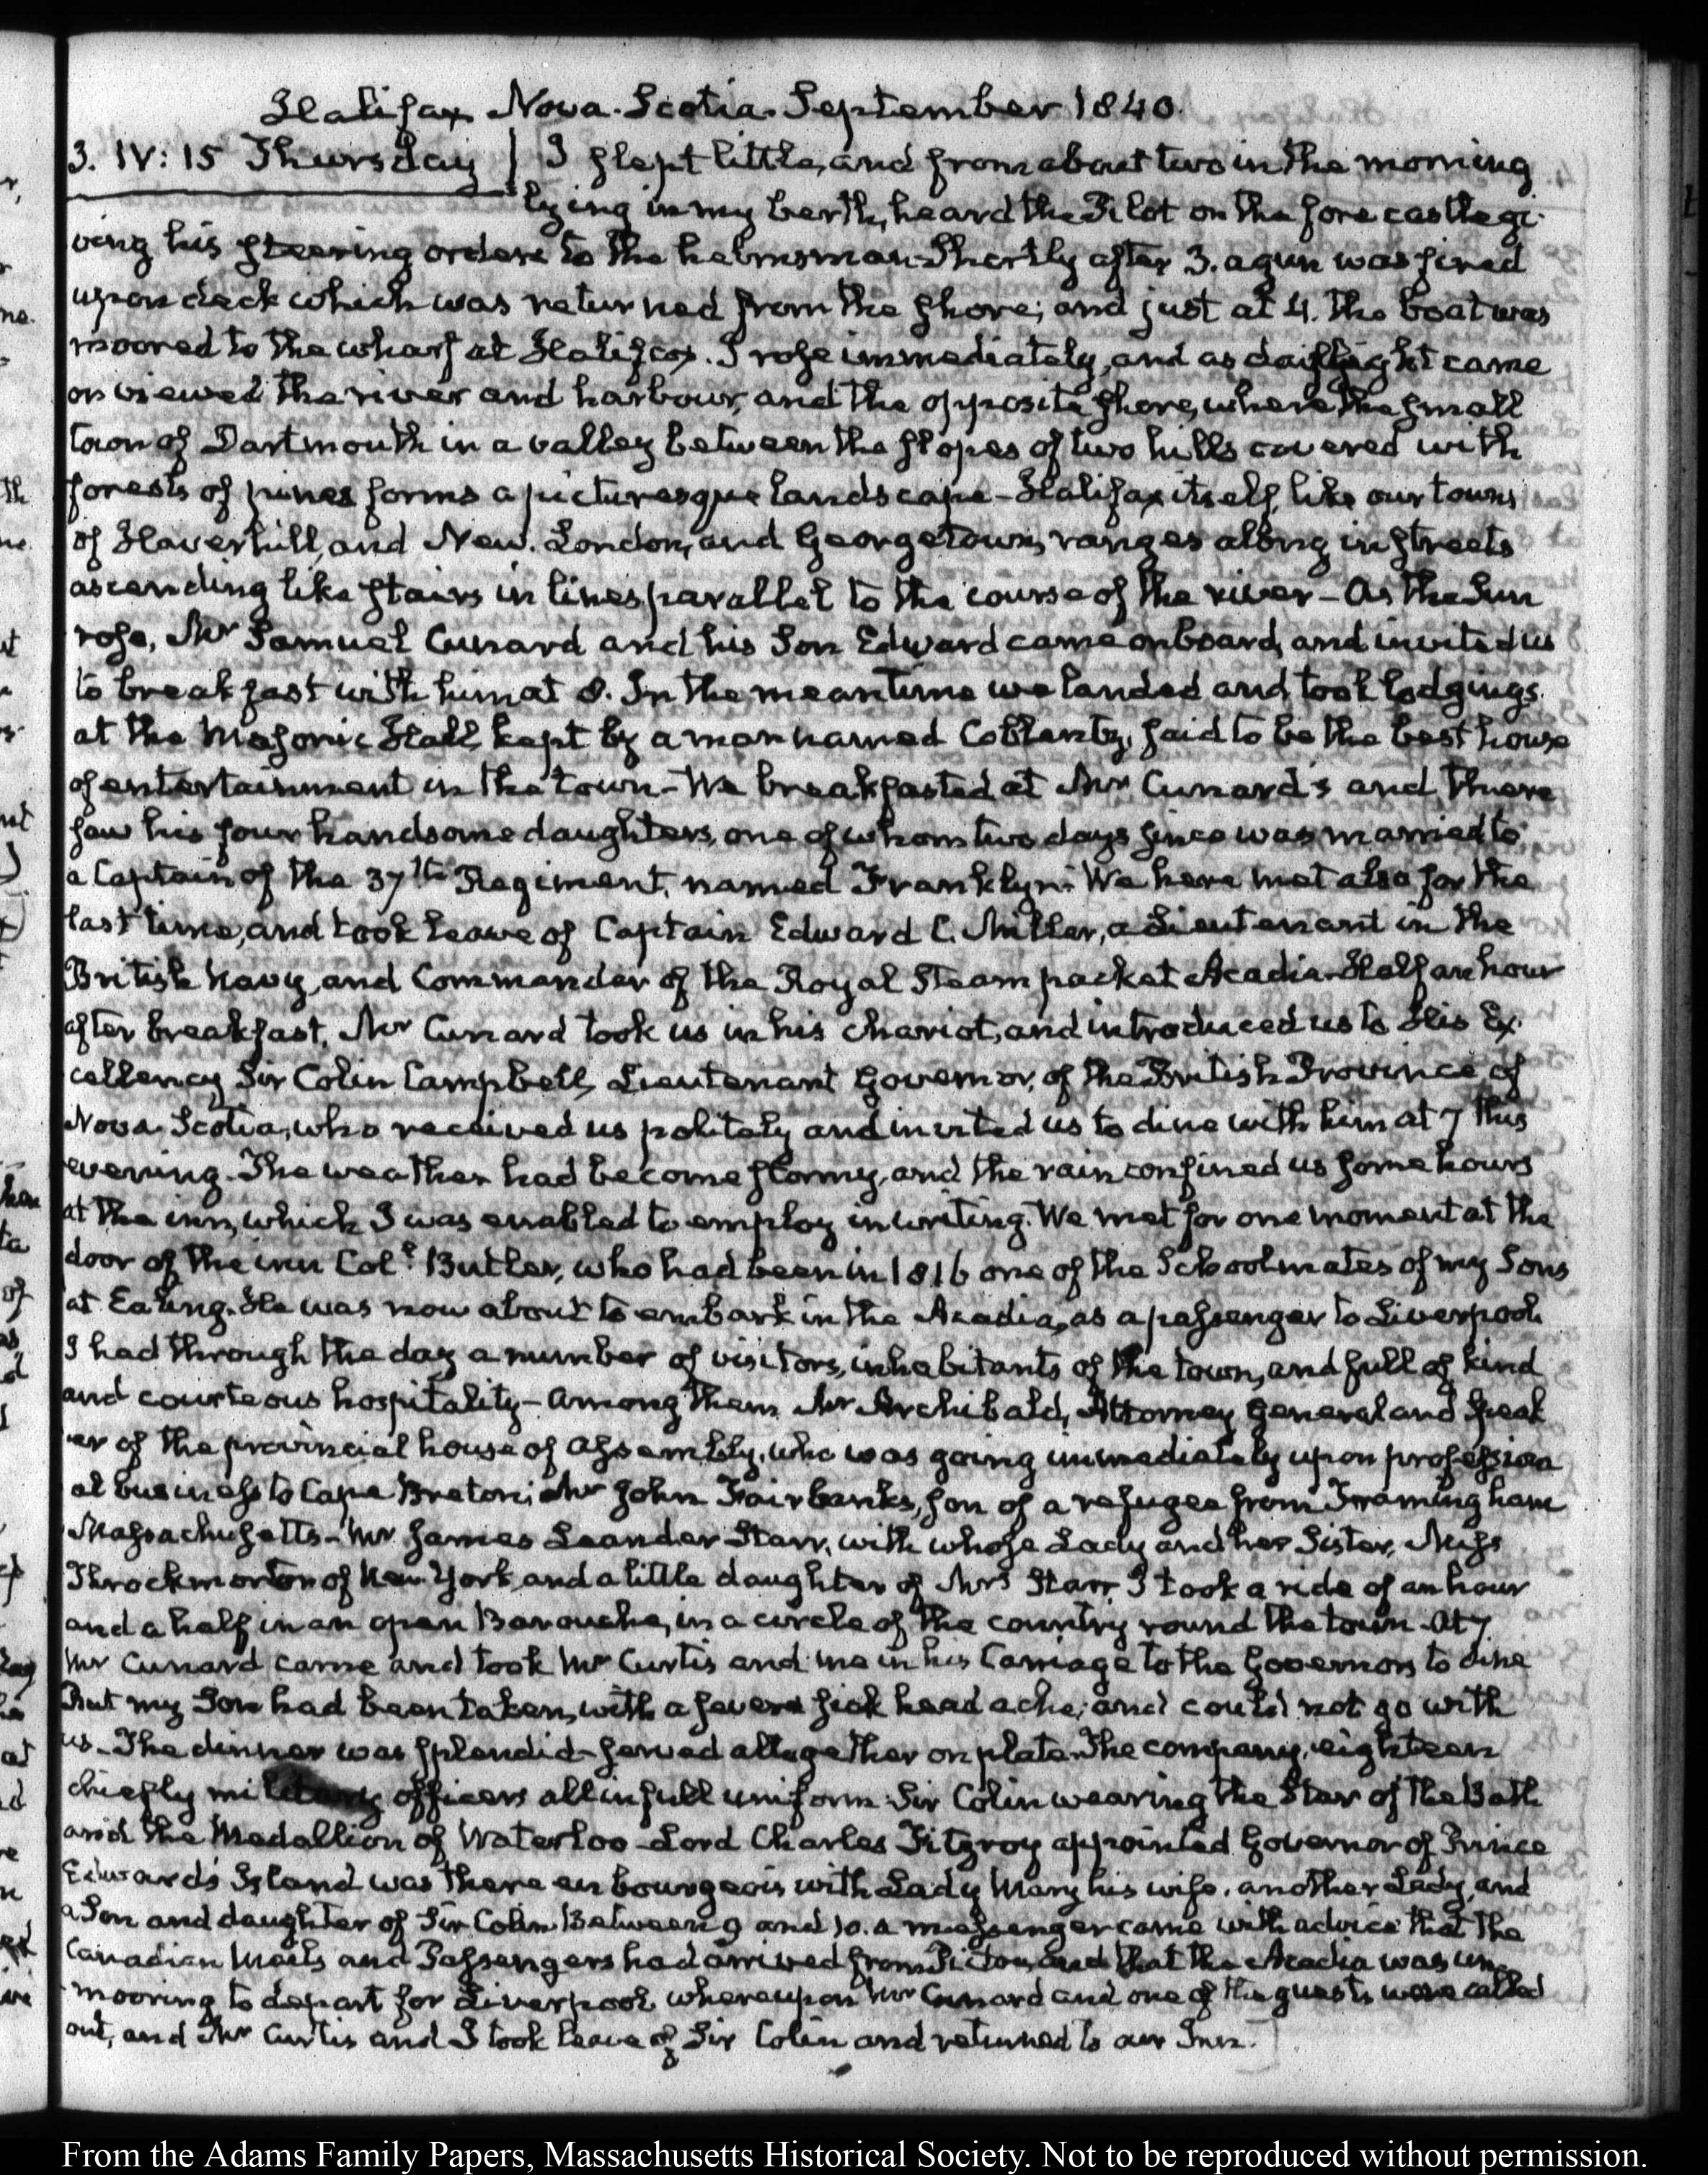 Halifax Nova-Scotia. September 1840.
3. IV:15 Thursday | I slept little, and from about two in the morning
lying in my berth, heard the Pilot on the forecastle gi-
ving his steering orders to the helmsman. Shortly after 3. a gun was fired
upon deck which was returned from the shore; and just at 4. the boat was
moored to the wharf at Halifax. I rose immediately, and as daylight came
on viewed the river and harbour, and the opposite shore, where the small
town of Dartmouth in a valley between the slopes of two hills covered with
forests of pines forms a picturesque landscape - Halifax itself, like our towns
of Haverhill, and New-London, and Georgetown, ranges along in streets
ascending like stairs in lines parallel to the course of the river - As the Sun
rose, Mr Samuel Cunard and his Son Edward came on board, and invited us
to breakfast with him at 8. In the meantime we landed and took lodgings
at the Masonic Hall, kept by a man named Coblentz, said to be the best house
of entertainment in the town - We breakfasted at Mr Cunard's and there
saw his four handsome daughters, one of whom two days since was married to
a Captain of the 37th Regiment, named Franklyn. We here met also for the
last time, and took leave of Captain Edward C. Miller, a Lieutenant in the
British Navy, and Commander of the Royal Steam packet Acadia. Half an hour
after breakfast, Mr Cunard took us in his chariot, and introduced us to His Ex-
cellency Sir Colin Campbell, Lieutenant Governor, of the British Province of
Nova-Scotia, who received us politely and invited us to dine with him at 7 this
evening. The weather had become stormy, and the rain confined us some hours
at the inn, which I was enabled to employ in writing. We met for one moment at the
door of the inn Coll Butler, who had been in 1816 one of the Schoolmates of my Sons
at Ealing. He was now about to embark in the Acadia, as a passenger to Liverpool.
I had through the day a number of visitors, inhabitants of the town, and full of kind
and courteous hospitality - among them Mr Archibald, Attorney General and Speak
er of the provincial house of Assembly, who was going immediately upon profession
al business to Cape Breton; Mr John Fairbanks, son of a refugee from Framingham
Massachusetts - Mr James Leander Starr, with whose Lady and her Sister, Miss
Throckmorton of New-York, and a little daughter of Mrs Starr, I took a ride of an hour
and a half in an open Barouche, in a circle of the country round the town. At 7
Mr Cunard came and took Mr Curtis and me in his Carriage to the Governors to dine
But my Son had been taken, with a severe sick head ache, and could not go with
us. The dinner was splendid - served altogether on plate. The company, eighteen
chiefly military officers all in full uniform. Sir Colin wearing the Star of the Bath
and the Medallion of Waterloo - Lord Charles Fitzroy appointed Governor of Prince
Edward's Island was there en bourgeois with Lady Mary his wife, another Lady, and
a Son and daughter of Sir Colin. Between 9 and 10. a messenger came with advice that the
Canadian Mails and Passengers had arrived from Pictou, and that the Acadia was un-
mooring to depart for Liverpool whereupon Mr Cunard and one of the guests were called
out, and Mr Curtis and I took leave of Sir Colin and returned to our Inn.
From the Adams Family Papers, Massachusetts Historical Society. Not to be reproduced without permission.